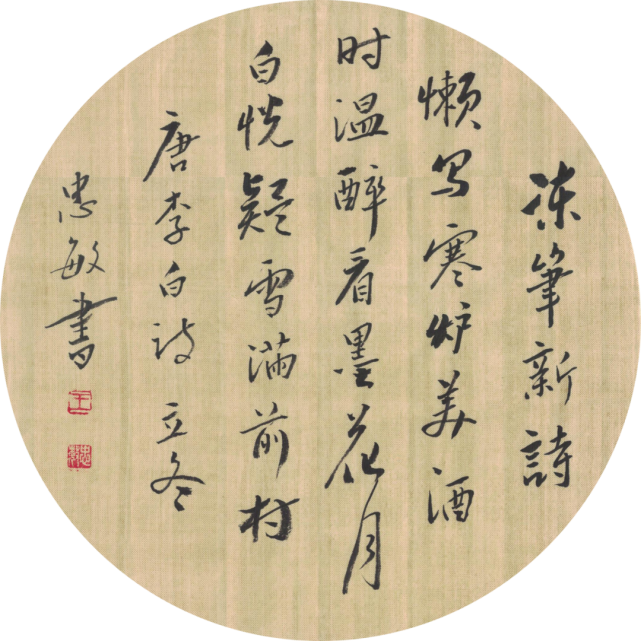 冻筆新詩
懒写寒炉美酒
时温醉看墨花月
白恍疑雪满前村
唐李白诗立冬
忠敏書